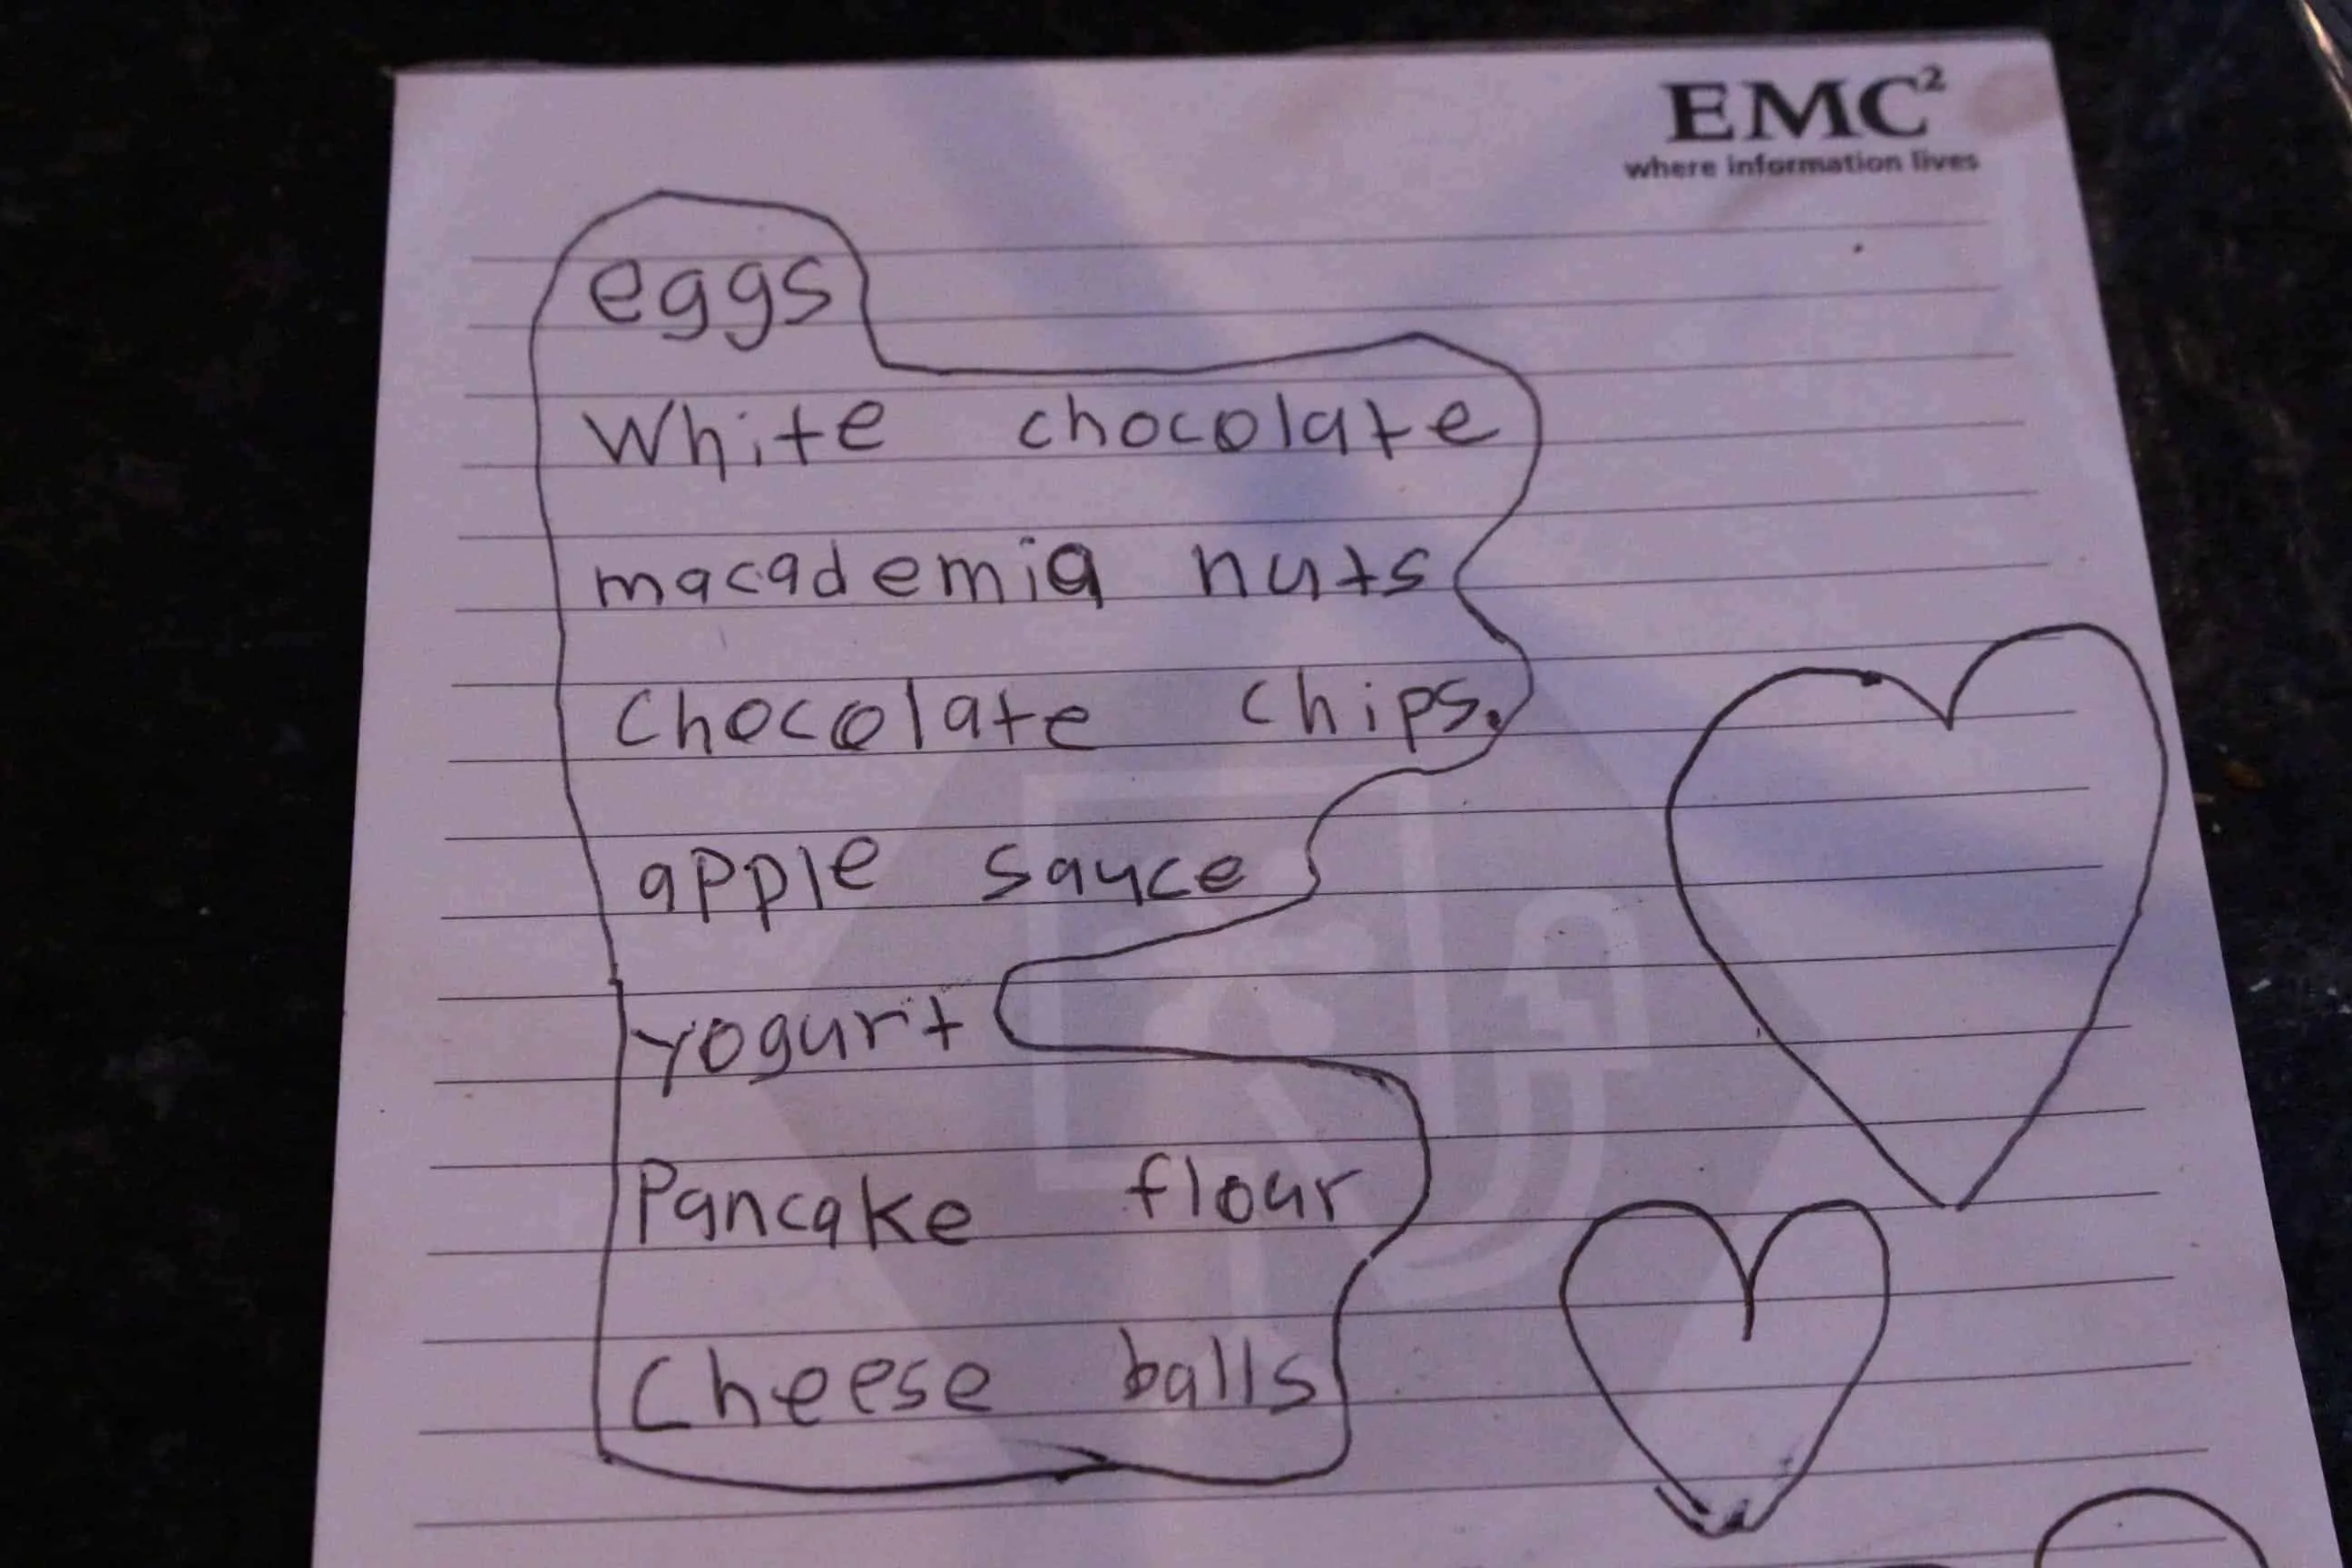 EMC²
where information lives
eggs
White chocolate
macademia nuts
Chocolate chips.
apple sauce
yogurt
Pancake flour
Cheese balls